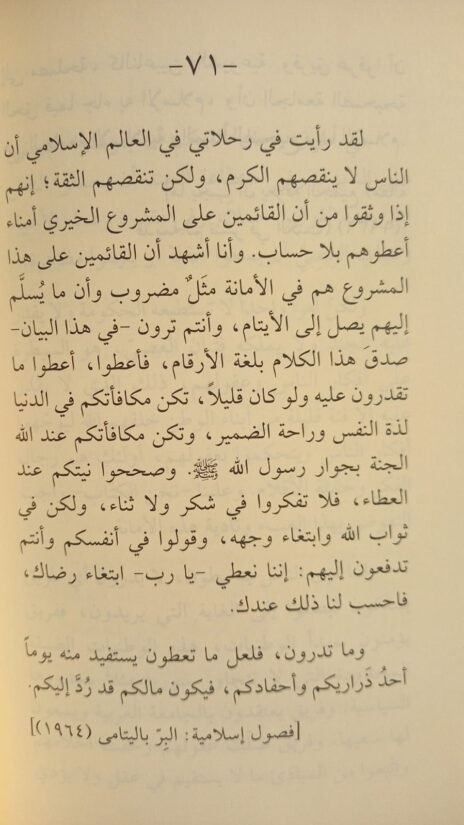 -٧١-
لقد رأيت في رحلاتي في العالم الإسلامي أن
الناس لا ينقصهم الكرم، ولكن تنقصهم الثقة؛ إنهم
إذا وثقوا من أن القائمين على المشروع الخيري أمناء
أعطوهم بلا حساب. وأنا أشهد أن القائمين على هذا
المشروع هم في الأمانة مثَلٌ مضروب وأن ما يُسلَّم
إليهم يصل إلى الأيتام، وأنتم ترون -في هذا البيان-
صدقَ هذا الكلام بلغة الأرقام، فأعطوا، أعطوا ما
تقدرون عليه ولو كان قليلاً، تكن مكافأتكم في الدنيا
لذة النفس وراحة الضمير، وتكن مكافأتكم عند الله
الجنة بجوار رسول الله ﷺ. وصححوا نيتكم عند
العطاء، فلا تفكروا في شكر ولا ثناء، ولكن في
ثواب الله وابتغاء وجهه، وقولوا في أنفسكم وأنتم
تدفعون إليهم: إننا نعطي -يا رب- ابتغاء رضاك،
فاحسب لنا ذلك عندك.
وما تدرون، فلعل ما تعطون يستفيد منه يوماً
أحدُ ذَراريكم وأحفادكم، فيكون مالكم قد رُدَّ إليكم.
[فصول إسلامية: البِرّ باليتامى (١٩٦٤)]